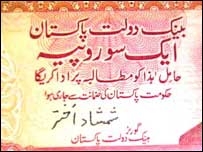 بینک دولت پاکستان
ایک سو روپیہ
حامل ہٰذا کو مطالبہ پر ادا کریگا
حکومت پاکستان کی ضمانت سے جاری ہوا
شمشاد اختر
گورنر
بینک دولت پاکستان